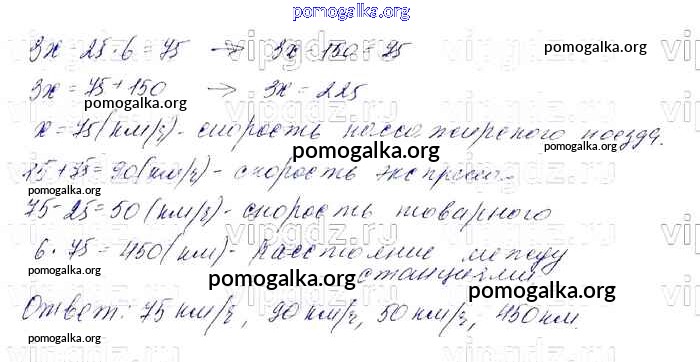 pomogalka.org
3x - 25 · 6 = 75 → 3x - 150 = 75
pomogalka.org
3x = 75 + 150 → 3x = 225
pomogalka.org
x = 75 (км/ч) - скорость пассажирского поезда.
pomogalka.org
15 + 75 = 90 (км/ч) - скорость экспресса.
pomogalka.org
75 - 25 = 50 (км/ч) - скорость товарного
6 · 75 = 450 (км) - расстояние между
pomogalka.org
станциями
pomogalka.org
pomogalka.org
Ответ: 75 км/ч, 90 км/ч, 50 км/ч, 450 км.
pomogalka.org